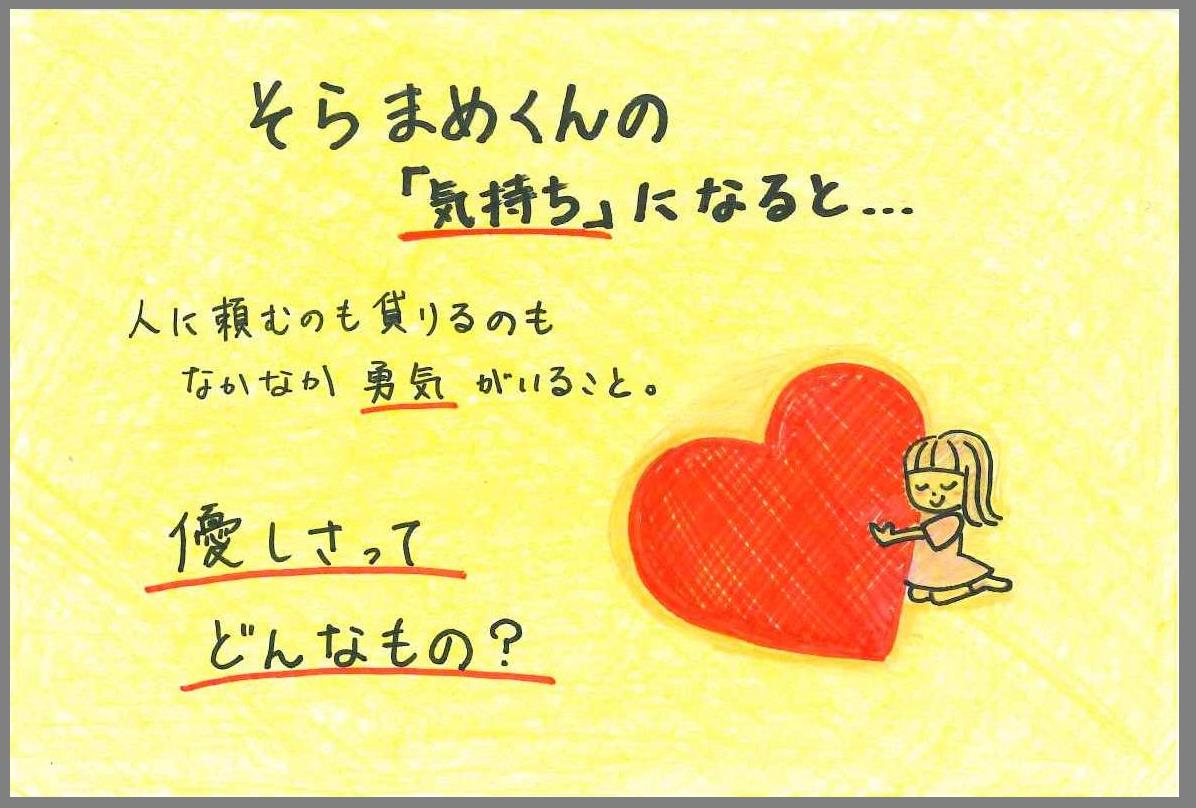 そらまめくんの
「気持ち」になると...
人に頼むのも貸りるのも
なかなか勇気がいること。
優しさって
どんなもの?